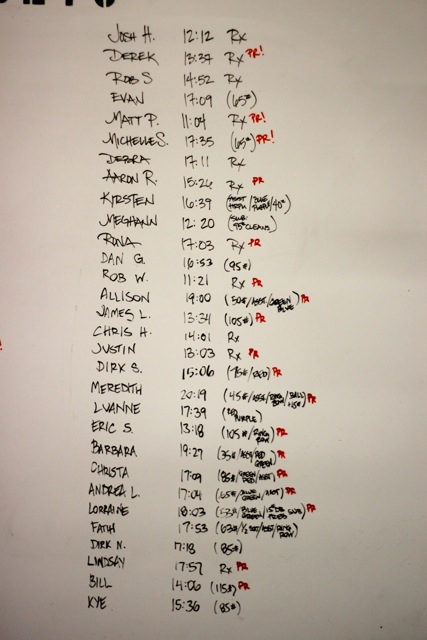 JOSH H. 12:12 Rx
DEREK 13:37 Rx PR!
ROB S 14:52 Rx
EVAN 17:09 (65#)
MATT P. 11:04 Rx PR!
MICHELLE S. 17:35 (65#) PR!
DEBRA 17:11 Rx
AARON R. 15:26 Rx PR
KIRSTEN 16:39
MEGHANN 12:20 (SUB. 75# CLEANS)
RONA 17:03 Rx PR
DAN G. 16:53 (95#)
ROB W. 11:21 Rx PR
ALLISON 19:00 (50#/ASST/GREEN BLUE) PR
JAMES L. 13:34 (105#) PR
CHRIS H. 14:01 Rx
JUSTIN 13:03 Rx PR
DIRK S. 15:06 (75#/RED) PR
MEREDITH 20:19 (45#/ASST/RING ROW/BALL PR
LVANNE 17:39 PURPLE)
ERIC S. 13:18 (105#/RING ROW) PR
BARBARA 19:27 (35#/ASST/RED GREEN) PR
CHRISTA 17:09 (85#/GREEN RED/ASST) PR
ANDREA L. 17:04 (65#/BLUE GREEN/ASST) PR
LORRAINE 18:03 BLUE GREEN PR
FAITH 17:53 (63#/ RING ROW)
DIRK N. 7:18 (85#)
LINDSAY 17:57 Rx PR
BILL 14:06 (115#) PR
KYE 15:36 (85#)